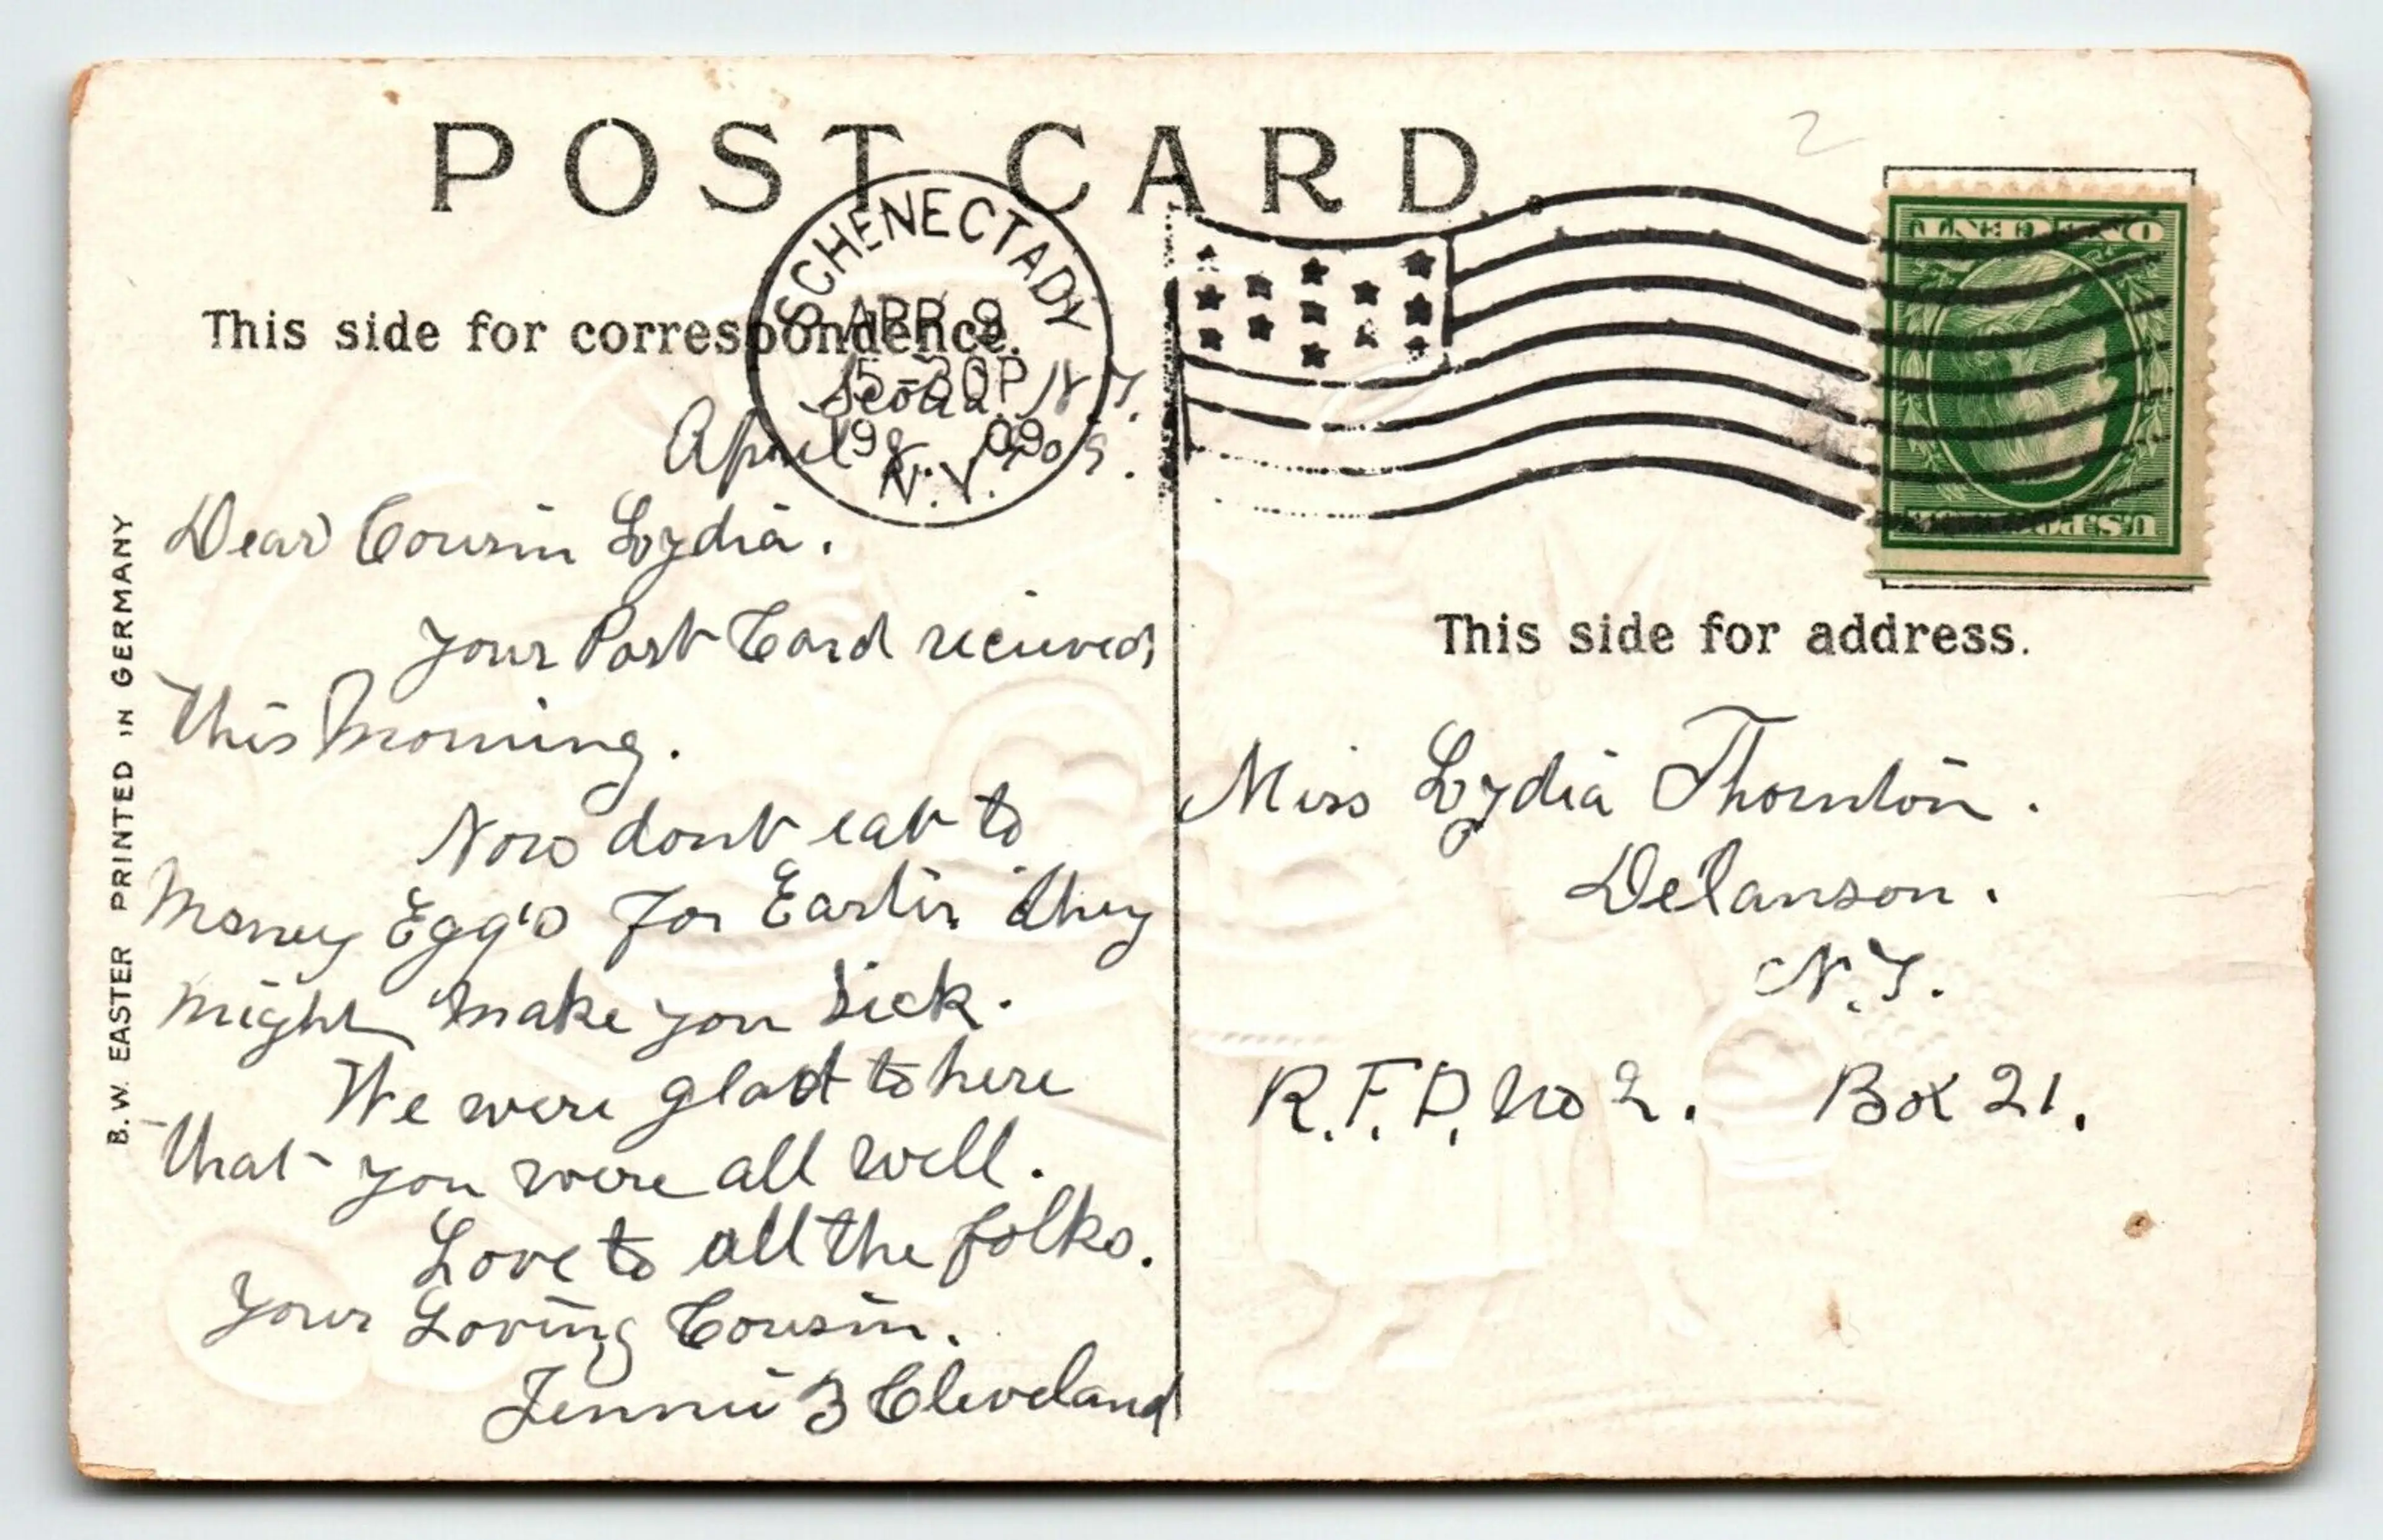 POST CARD.
This side for correspondence.
SCHENECTADY
APR 9
5-30P
1909
N.Y.
Scotia. N.Y.
April 9. 1909.
Dear Cousin Lydia.
Your Post Card recieved
This Morning.
Now dont eat to
Meney Egg's For Easter they
might make you sick.
We were glad to here
that you were all well.
Love to all the folks.
Your Loving Cousin.
Jennie B Cleveland
B.W. EASTER PRINTED IN GERMANY
2
ONE CENT ONE
U.S. POSTAGE
This side for address.
Miss Lydia Thornton.
Delanson.
N.Y.
R.F.D. No 2. Box 21.